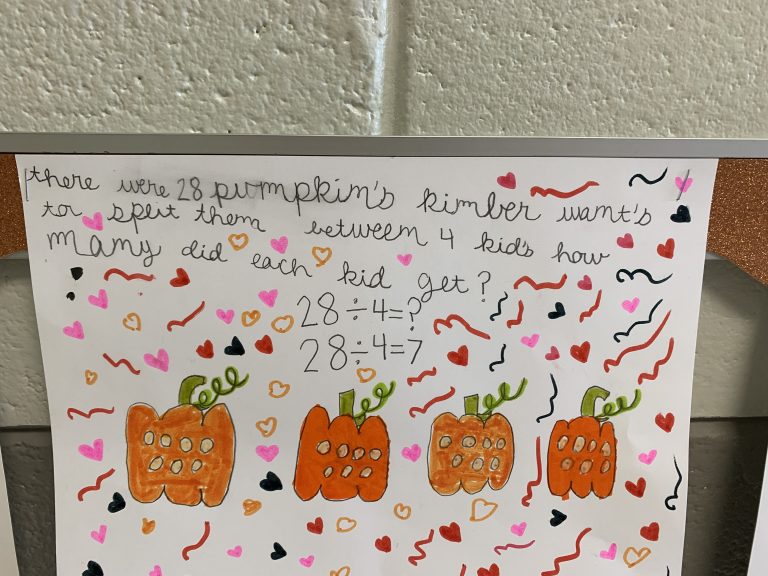 there were 28 pumpkim's kimber wamt's
tor split them betweem 4 kid's how
mamy did each kid get?
28÷4=?
28÷4=7